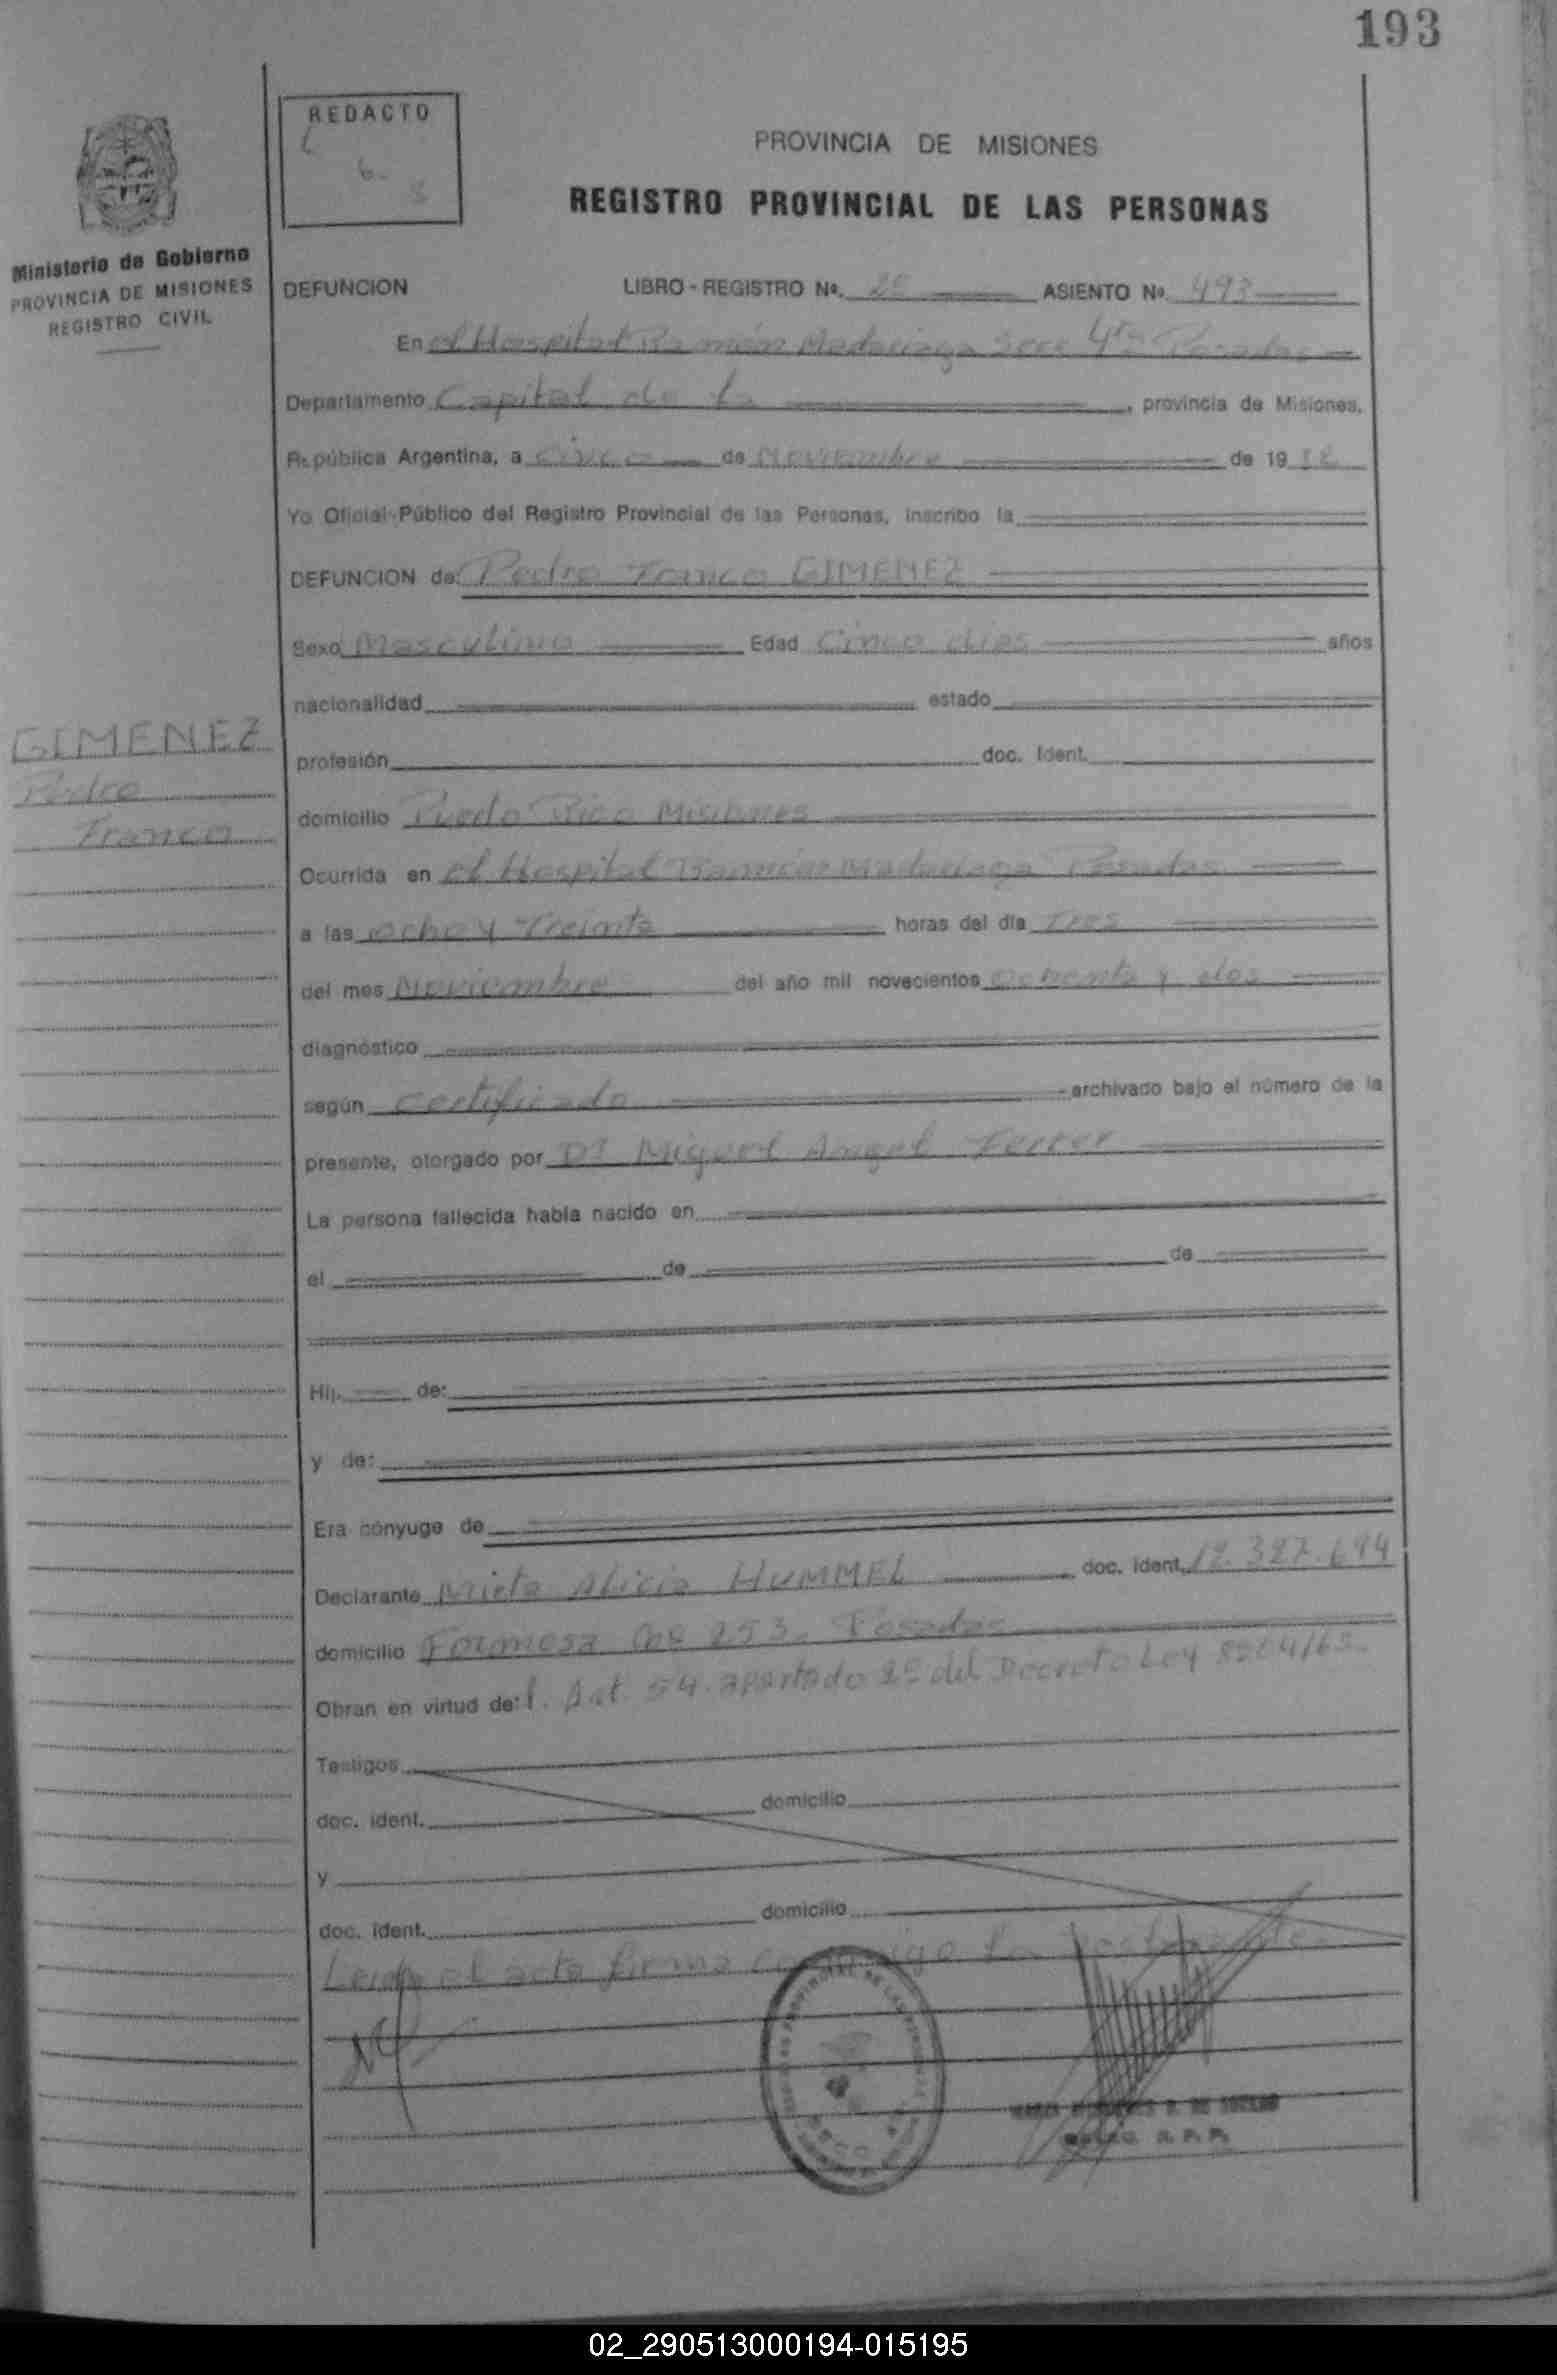 193
REDACTO
PROVINCIA DE MISIONES
REGISTRO PROVINCIAL DE LAS PERSONAS
Ministerio de Gobierno
PROVINCIA DE MISIONES
REGISTRO CIVIL
DEFUNCION LIBRO - REGISTRO Nº. ASIENTO Nº. 493
En el Hospital Ramón Madariaga Secc 4ta Posadas
Departamento Capital de la , provincia de Misiones,
República Argentina, a cinco de Noviembre de 19 82
Yo Oficial Público del Registro Provincial de las Personas, inscribo la
DEFUNCION de: Pedro Franco GIMENEZ
Sexo Masculino Edad Cinco dias años
nacionalidad estado
GIMENEZ
Pedro
Franco
profesión doc. Ident.
domicilio Puerto Rico Misiones
Ocurrida en el Hospital Ramón Madariaga Posadas
a las ocho y Treinta horas del día Tres
del mes Noviembre del año mil novecientos ochenta y dos
diagnóstico
según certificado archivado bajo el número de la
presente, otorgado por Dr Miguel Angel Ferrer
La persona fallecida había nacido en
el de de
Hij. de:
y de:
Era cónyuge de
Declarante Mirta Alicia HUMMEL doc. Ident. 12.327.694
domicilio Formosa 253. Posadas
Obran en virtud de: l. Art. 54. apartado 2º del Decreto Ley 8204/63.
Testigos
doc. ident. domicilio
y
doc. ident. domicilio
Leida el acta firma conmigo la
R. P. P.
02_290513000194-015195